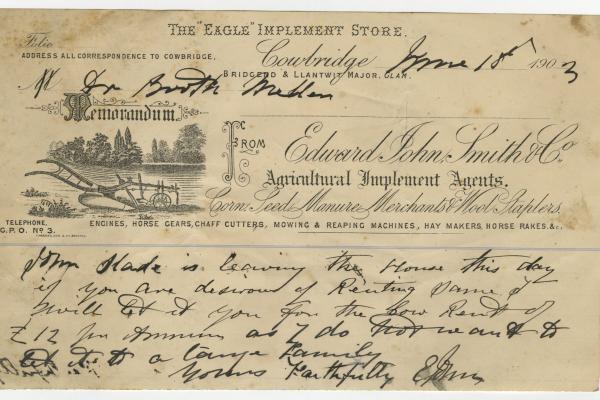 THE "EAGLE" IMPLEMENT STORE.
Folio
ADDRESS ALL CORRESPONDENCE TO COWBRIDGE,
Cowbridge June 18th 1903
BRIDGEND & LLANTWIT MAJOR, GLAM.
Mr Dr Booth
Memorandum.
FROM
Edward John, Smith & Co.
Agricultural Implement Agents.
Corn, Seed, Manure Merchants & Wool Staplers.
TELEPHONE,
G.P.O. No 3.
ENGINES, HORSE GEARS, CHAFF CUTTERS, MOWING & REAPING MACHINES, HAY MAKERS, HORSE RAKES. &c.
John Slade is leaving the House this day
if you are desirous of Renting Same I
will let it you for the low Rent of
£12 per Annum as I do not want to
let it to a large Family
Yours Faithfully